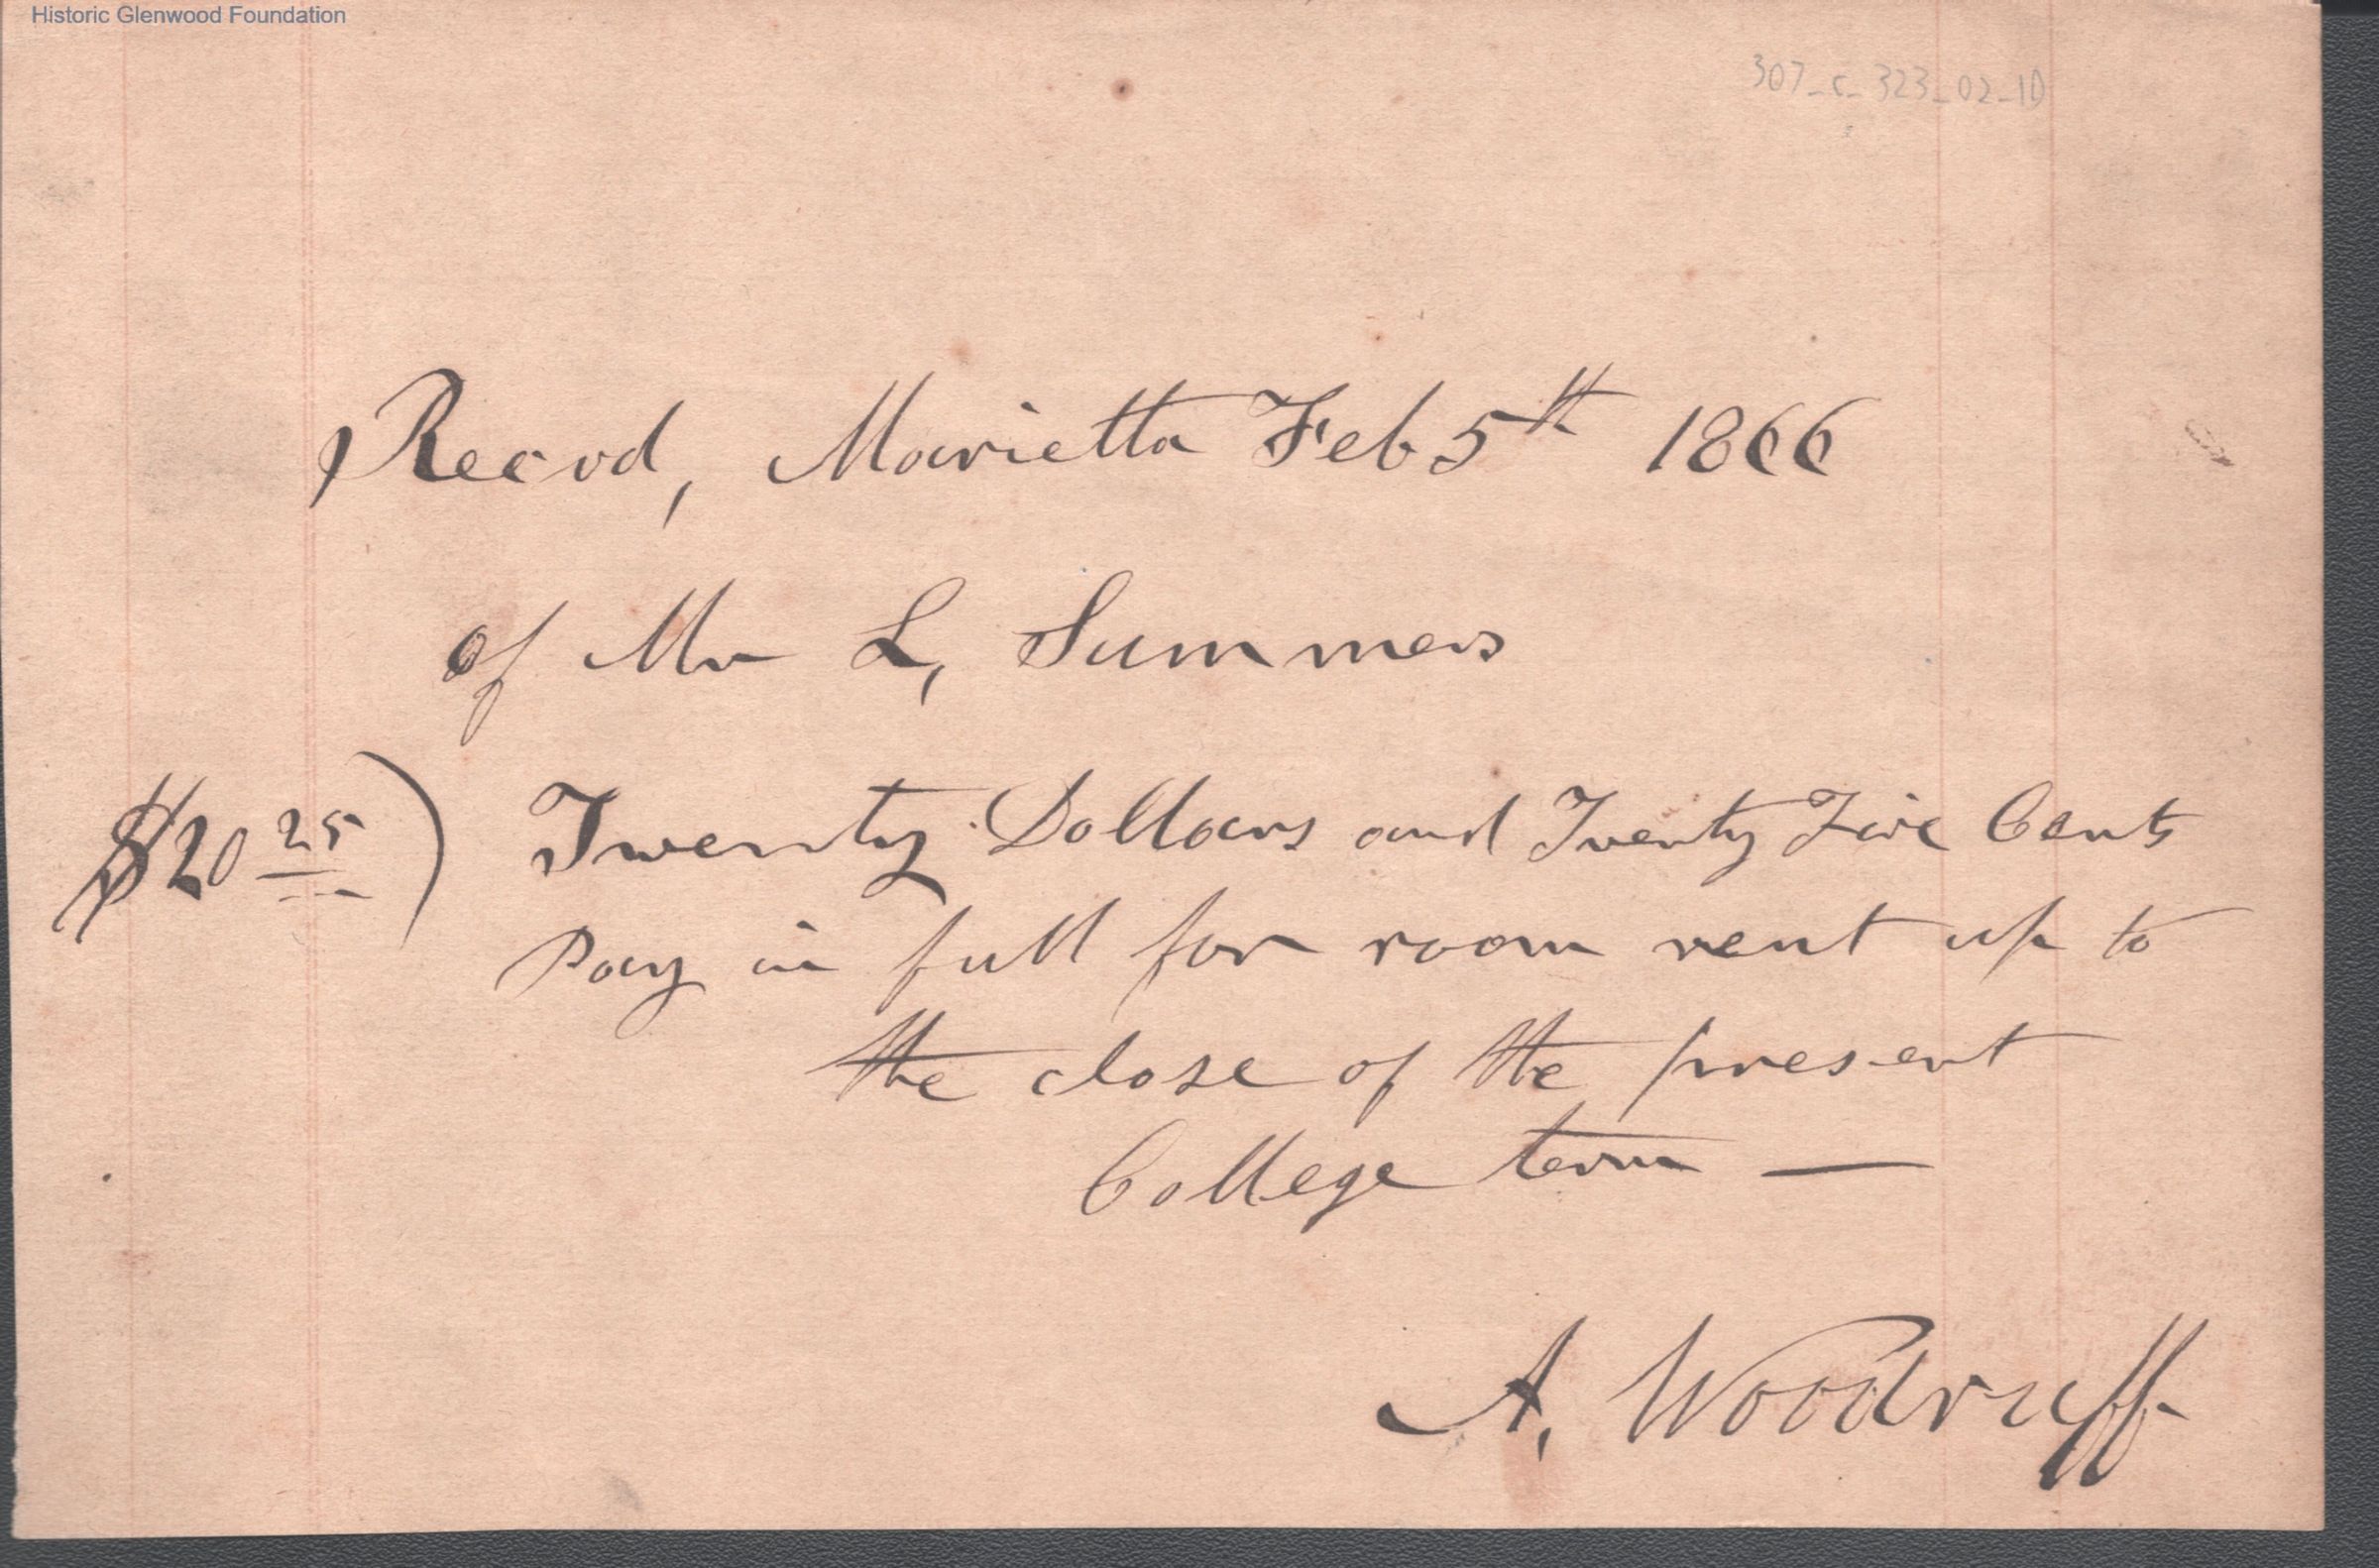 Historic Glenwood Foundation
307_c_323_02_10
Recvd, Marietta Feb 5th 1866
of Mr L, Summers
$20 25) Twenty Dollars and Twenty Five Cents
Pay in full for room rent up to
the close of the present
College term —
A, Woodruff